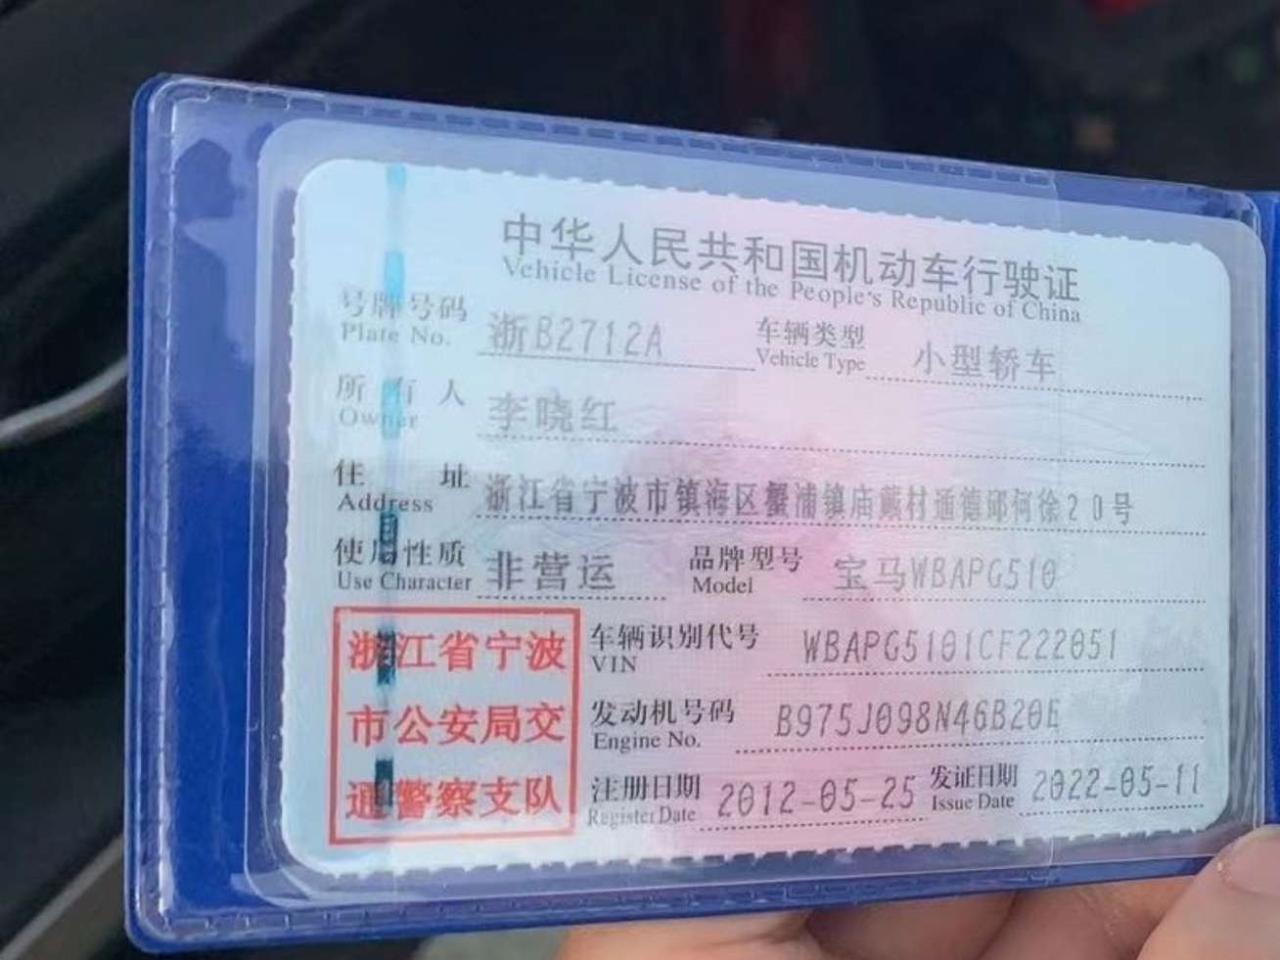 中华人民共和国机动车行驶证
Vehicle License of the People's Republic of China
号牌号码 浙B2712A 车辆类型 小型轿车
Plate No. Vehicle Type
所有人 李晓红
Owner
住址 浙江省宁波市镇海区蟹浦镇庙戴村通德邱何徐20号
Address
使用性质 非营运 品牌型号 宝马WBAPG510
Use Character Model
浙江省宁波
市公安局交
通警察支队
车辆识别代号 WBAPG5101CF222051
VIN
发动机号码 B975J098N46B20E
Engine No.
注册日期 2012-05-25 发证日期 2022-05-11
Register Date Issue Date